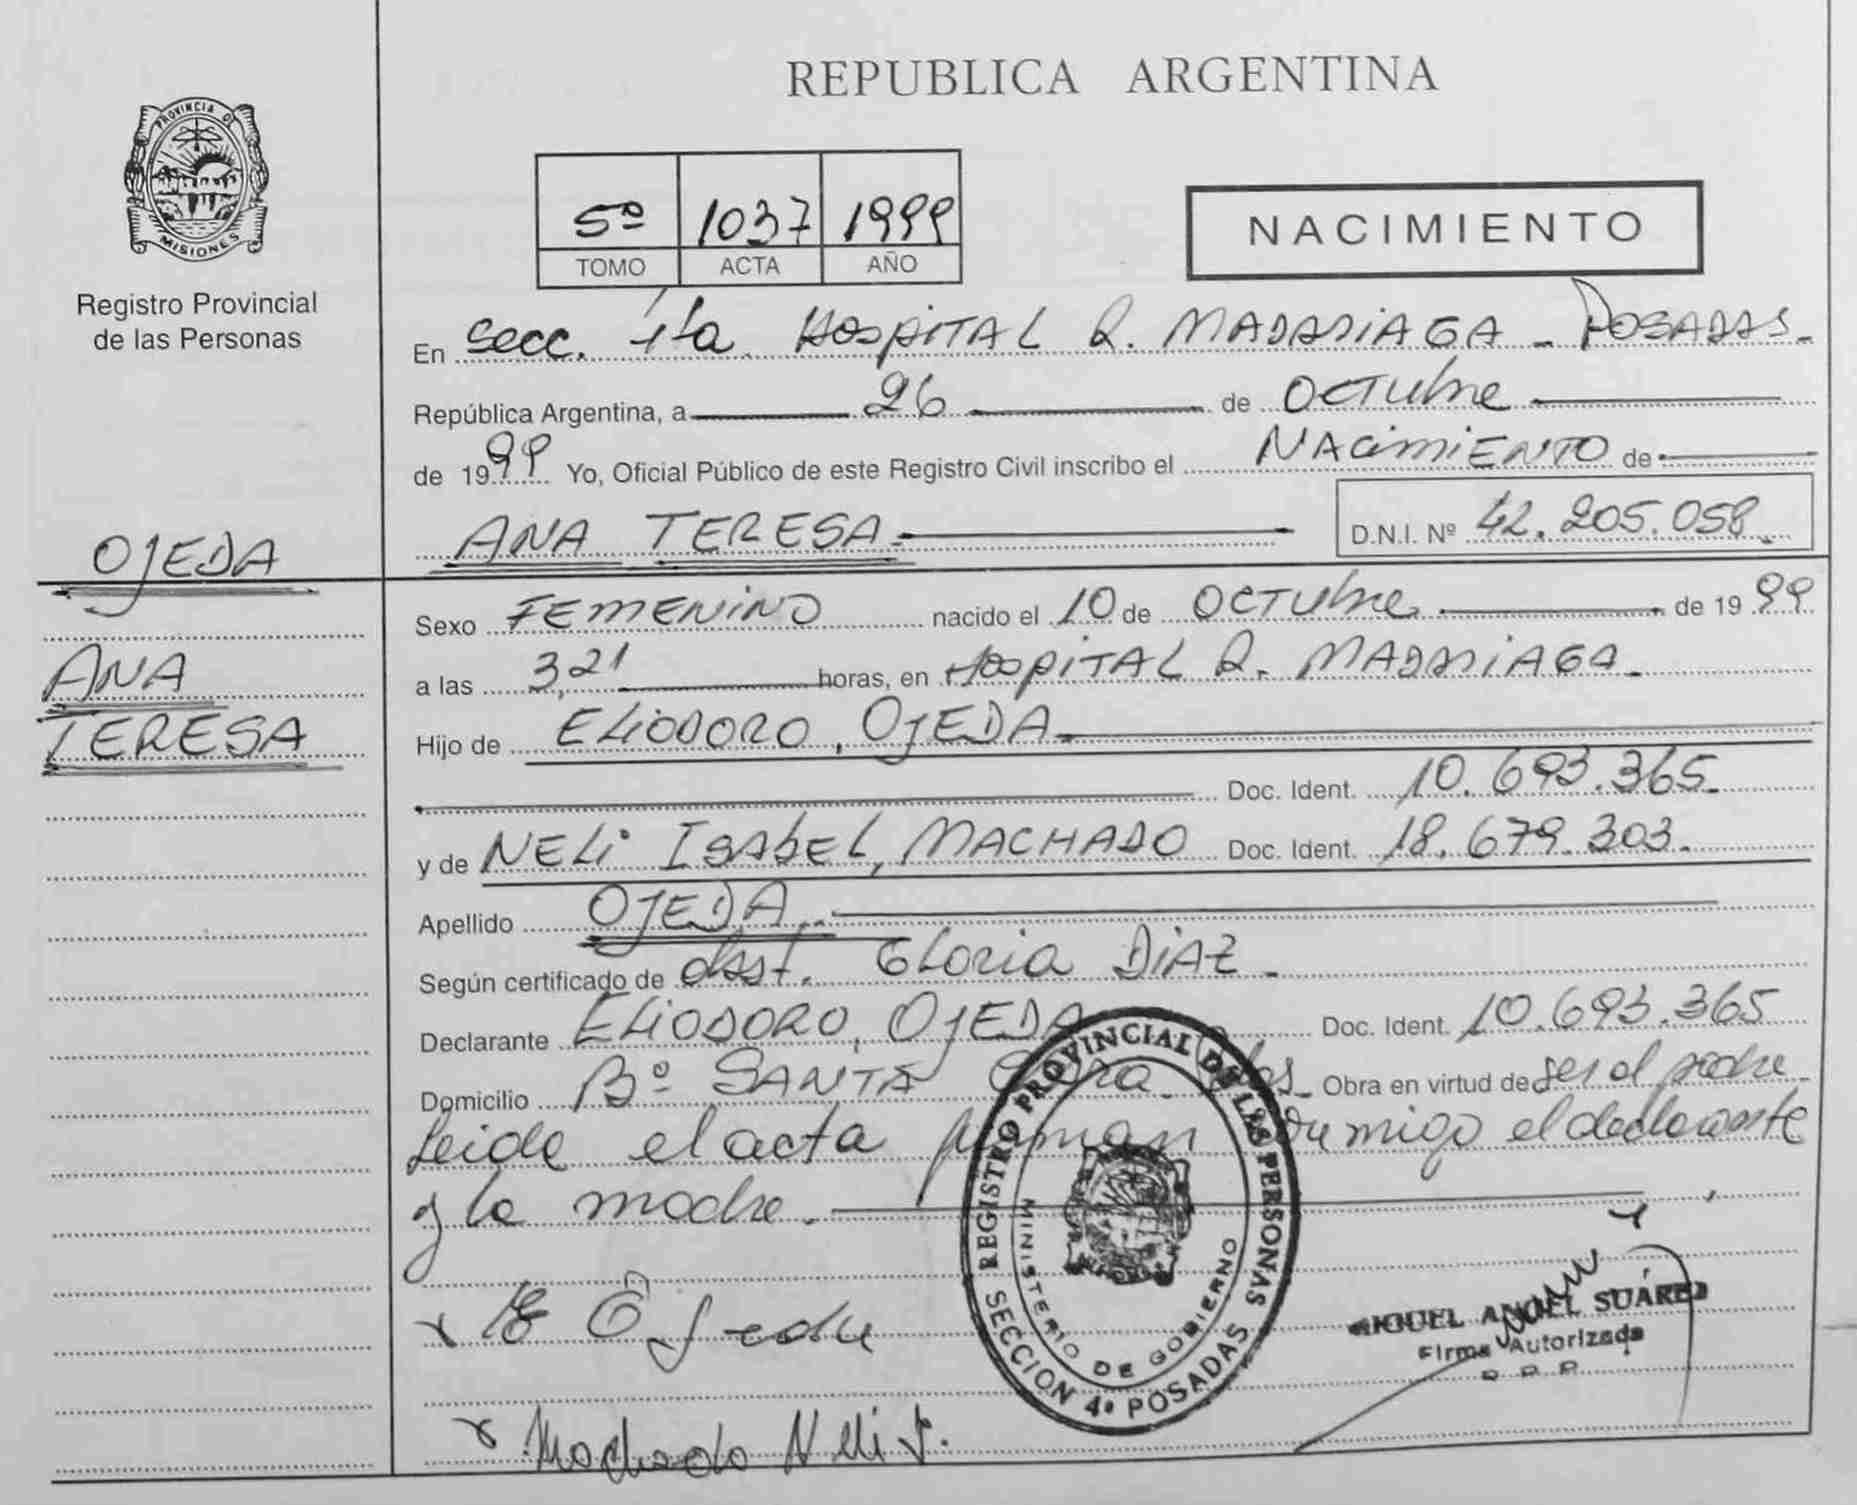 REPUBLICA ARGENTINA
PROVINCIA DE
MISIONES
Registro Provincial
de las Personas
5º 1037 1999
TOMO ACTA AÑO
NACIMIENTO
En Secc. 1ra Hospital R. MADARIAGA - POSADAS-
República Argentina, a 26 de OCTUbre
de 1999 Yo, Oficial Público de este Registro Civil inscribo el NACimiENTO de
ANA TERESA D.N.I. Nº 42.205.058
OJEDA
ANA
TERESA
Sexo FEMENiNO nacido el 10 de OCTUbre de 1999
a las 3,21 horas, en HospiTAL R. MADARiAGA.
Hijo de ELiODORO, OJEDA
Doc. Ident. 10.693.365.
y de NELi ISAbEL, MACHADO Doc. Ident. 18.679.303.
Apellido OJEDA
Según certificado de obst. GLoria DiAZ -
Declarante ELiODORO, OJEDA Doc. Ident. 10.693.365
Domicilio Bº SANTA Obra en virtud de ser el padre
Leida el acta firman conmigo el declarante
y la madre.
REGISTRO PROVINCIAL DE LAS PERSONAS
MINISTERIO DE GOBIERNO
SECCION 4ª POSADAS
MIGUEL ANGEL SUÁREZ
Firma Autorizada
Machado Neli I.